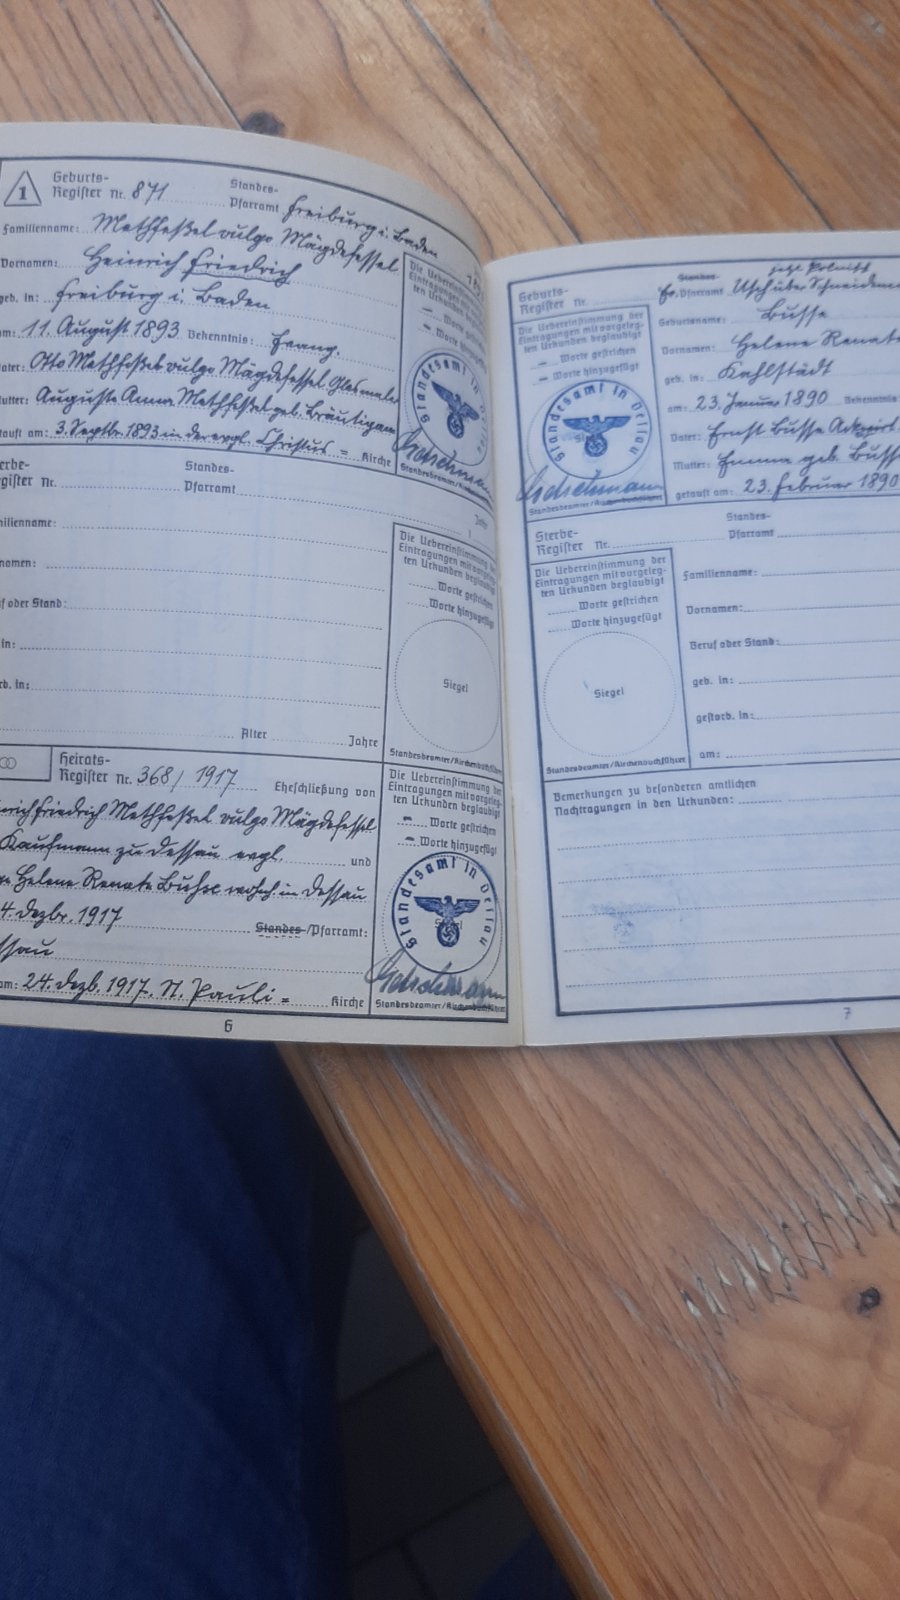 1
Geburts-
Register Nr. 871
Standes-
Pfarramt Freiburg i. Baden
Familienname: Methfeßel vulgo Mägdefessel
Vornamen: Heinrich Friedrich
geb. in: Freiburg i. Baden
am: 11. August 1893 Bekenntnis: Evang.
Vater: Otto Methfeßel vulgo Mägdefessel Glasmaler
Mutter: Auguste Anna Methfeßel geb. Bräutigam
getauft am: 3. Septbr. 1893 in der evgl. Christus = Kirche
Die Uebereinstimmung der
Eintragungen mit
Urkunden beglaubigt
– Worte gestrichen
– Worte
Standesamt in Dessau
Standesbeamter/
Sterbe-
Register Nr.
Standes-
Pfarramt
Jahr
Familienname:
Vornamen:
Beruf oder Stand:
geb. in:
gestorb. in:
Alter Jahre
Die Uebereinstimmung der
Eintragungen mit vorgeleg-
ten Urkunden beglaubigt
Worte gestrichen
Worte hinzugefügt
Siegel
Standesbeamter/Kirchenbuchführer
Heirats-
Register Nr. 368/1917
Eheschließung von
Heinrich Friedrich Methfeßel vulgo Mägdefessel
Kaufmann zu Dessau evgl. und
Helene Renate in Dessau
4. Dezbr. 1917 Standes-/Pfarramt:
Dessau
am: 24. Dezb. 1917. St. Pauli = Kirche
Die Uebereinstimmung der
Eintragungen mit vorgeleg-
ten Urkunden beglaubigt
– Worte gestrichen
– Worte hinzugefügt
Standesamt in Dessau
Standesbeamter/Kirchenbuchführer
6
Geburts-
Register Nr.
Standes-
jetzt
Pfarramt Usch über
Geburtsname: Busse
Vornamen: Helene Renate
geb. in: Kahlstädt
am: 23. Januar 1890 Bekenntnis
Vater: Ernst Busse
Mutter: Emma geb. Busse
getauft am: 23. Februar 1890
Die Uebereinstimmung der
Eintragungen mit vorgeleg-
ten Urkunden beglaubigt
– Worte gestrichen
– Worte hinzugefügt
Standesamt in Dessau
Standesbeamter/Kirchenbuchführer
Sterbe-
Register Nr.
Standes-
Pfarramt
Die Uebereinstimmung der
Eintragungen mit vorgeleg-
ten Urkunden beglaubigt
Worte gestrichen
Worte hinzugefügt
Siegel
Standesbeamter/Kirchenbuchführer
Familienname:
Vornamen:
Beruf oder Stand:
geb. in:
gestorb. in:
am:
Bemerkungen zu besonderen amtlichen
Nachtragungen in den Urkunden:
7